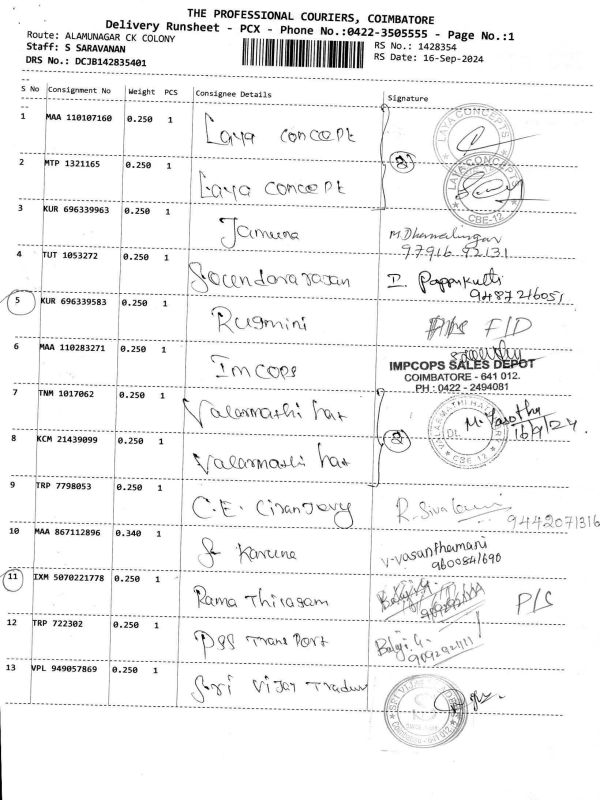 THE PROFESSIONAL COURIERS, COIMBATORE
Delivery Runsheet - PCX - Phone No.:0422-3505555 - Page No.:1
Route: ALAMUNAGAR CK COLONY
RS No.: 1428354
Staff: S SARAVANAN
RS Date: 16-Sep-2024
DRS No.: DCJB142835401
S No Consignment No Weight PCS Consignee Details Signature
1 MAA 110107160 0.250 1 Laya concept
LAYA CONCEPTS
2 MTP 1321165 0.250 1 Laya concept
LAYA CONCEPTS
CBE-12
3 KUR 696339963 0.250 1 Jamuna M. Dharmalingar
97916 92131
4 TUT 1053272 0.250 1 P. Pappukutti
9487216051
5 KUR 696339583 0.250 1 Rugmini F/D
6 MAA 110283271 0.250 1 Imcops
IMPCOPS SALES DEPOT
COIMBATORE - 641 012.
PH : 0422 - 2494081
7 TNM 1017062 0.250 1 Valarmathi hat
16/9/24
8 KCM 21439099 0.250 1 Valarmathi hat
CBE-12
9 TRP 7798053 0.250 1 C.E. 9442071316
10 MAA 867112896 0.340 1 Karuna V-Vasanthamani
9600841690
11 IXM 5070221778 0.250 1 Rama P/S
12 TRP 722302 0.250 1 PSS Trans Port Balaji.G.
13 VPL 949057869 0.250 1 Sri Vijay